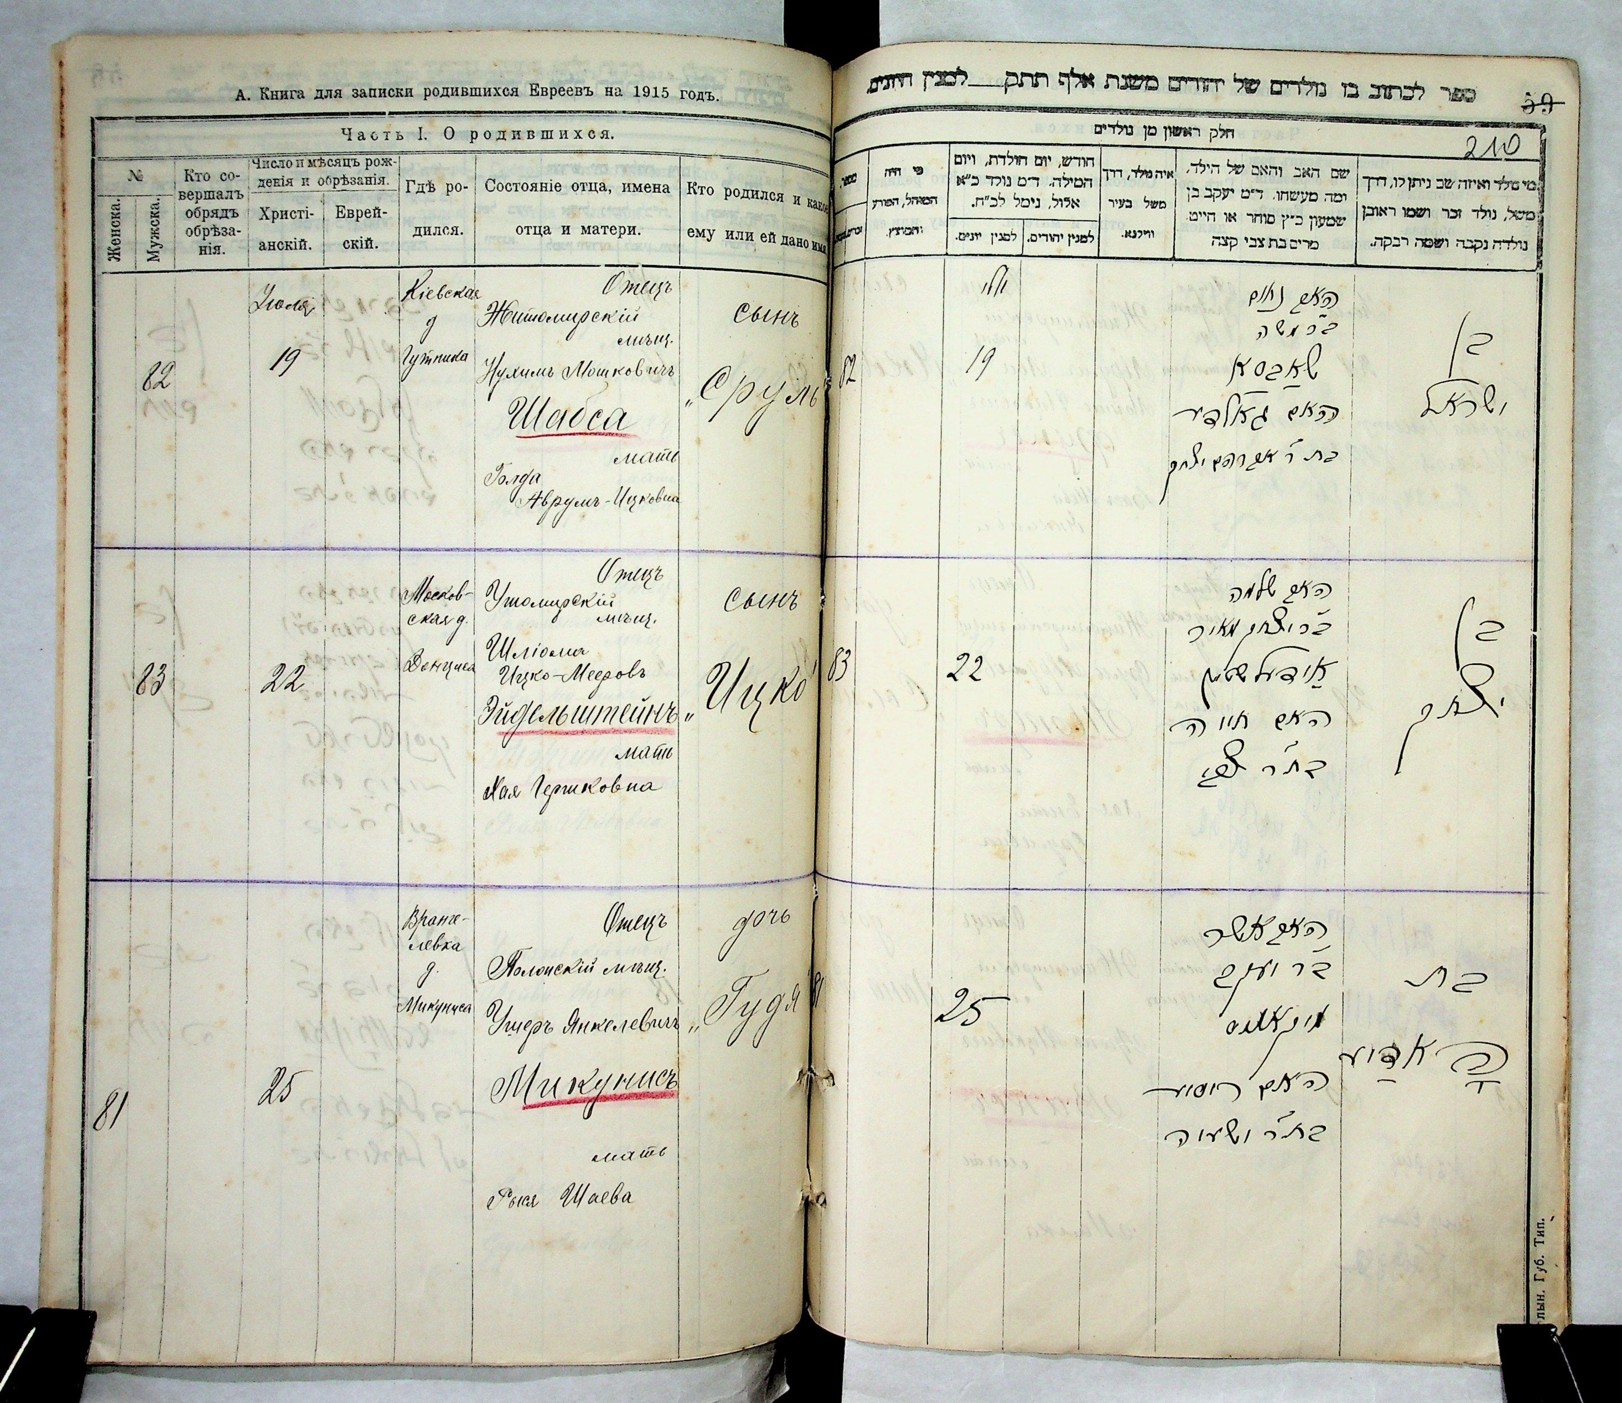 А. Книга для записки родившихся Евреевъ на 1915 годъ.
Часть I. О родившихся.
№
Женска.
Мужска.
Кто со-
вершалъ
обрядъ
обрѣза-
нія.
Число и мѣсяцъ рож-
денія и обрѣзанія.
Христі-
анскій.
Еврей-
скій.
Гдѣ ро-
дился.
Состояніе отца, имена
отца и матери.
Кто родился и какое
ему или ей дано имя
82
Іюля
19
Кіевская
д
Гутника
Отецъ
Житомирскій
мѣщ.
Нухимъ Мошковичъ
Шабса
мать
Голда
Аврумъ-Ицковна
сынъ
„Сруль
83
22
Москов-
ская д.
Отецъ
мѣщ.
Шліома
Ицко-Мееровъ
Эйдельштейнъ
мать
Хая Гершковна
сынъ
„Ицко
81
25
Вранге-
левка
д.
Микуниса
Отецъ
Полонскій мѣщ.
Ушеръ Янкелевичъ
Микунисъ
мать
Рыся Шаева
дочь
„Гудя
ספר לכתוב בו נולדים של יהודים משנת אלף תתק למנין היונים
59
210
חלק ראשון מן נולדים
מי היה
המוהל, הפורע
והמוצץ.
חודש, יום הולדת, ויום
המילה. ד״מ נולד כ״א
אלול, נימל לכ״ח.
למנין יונים.
למנין יהודים.
איה נולד, דרך
משל בעיר
ווילנא.
שם האב והאם של הילד,
ומה מעשהו. ד״מ יעקב בן
שמעון כ״ץ סוחר או חייט
מרים בת צבי קצה
מי נולד ואיזה שם ניתן לו, דרך
משל, נולד זכר ושמו ראובן
נולדה נקבה ושמה רבקה.
82
יולי
19
האב נחום
ב״ר משה
שאבסא
האם גאלדיע
בת ר׳ אברהם יצחק
בן
ישראל
83
22
האב שלמה
ב״ר יצחק מאיר
איידעלשטיין
האם חיה
בת ר׳ צבי
בן
יצחק
81
25
האב אשר
ב״ר יעקב
מיקאניס
האם רייסיע
בת ר׳ ישעיה
בת
האדיע
лын. Губ. Тип.